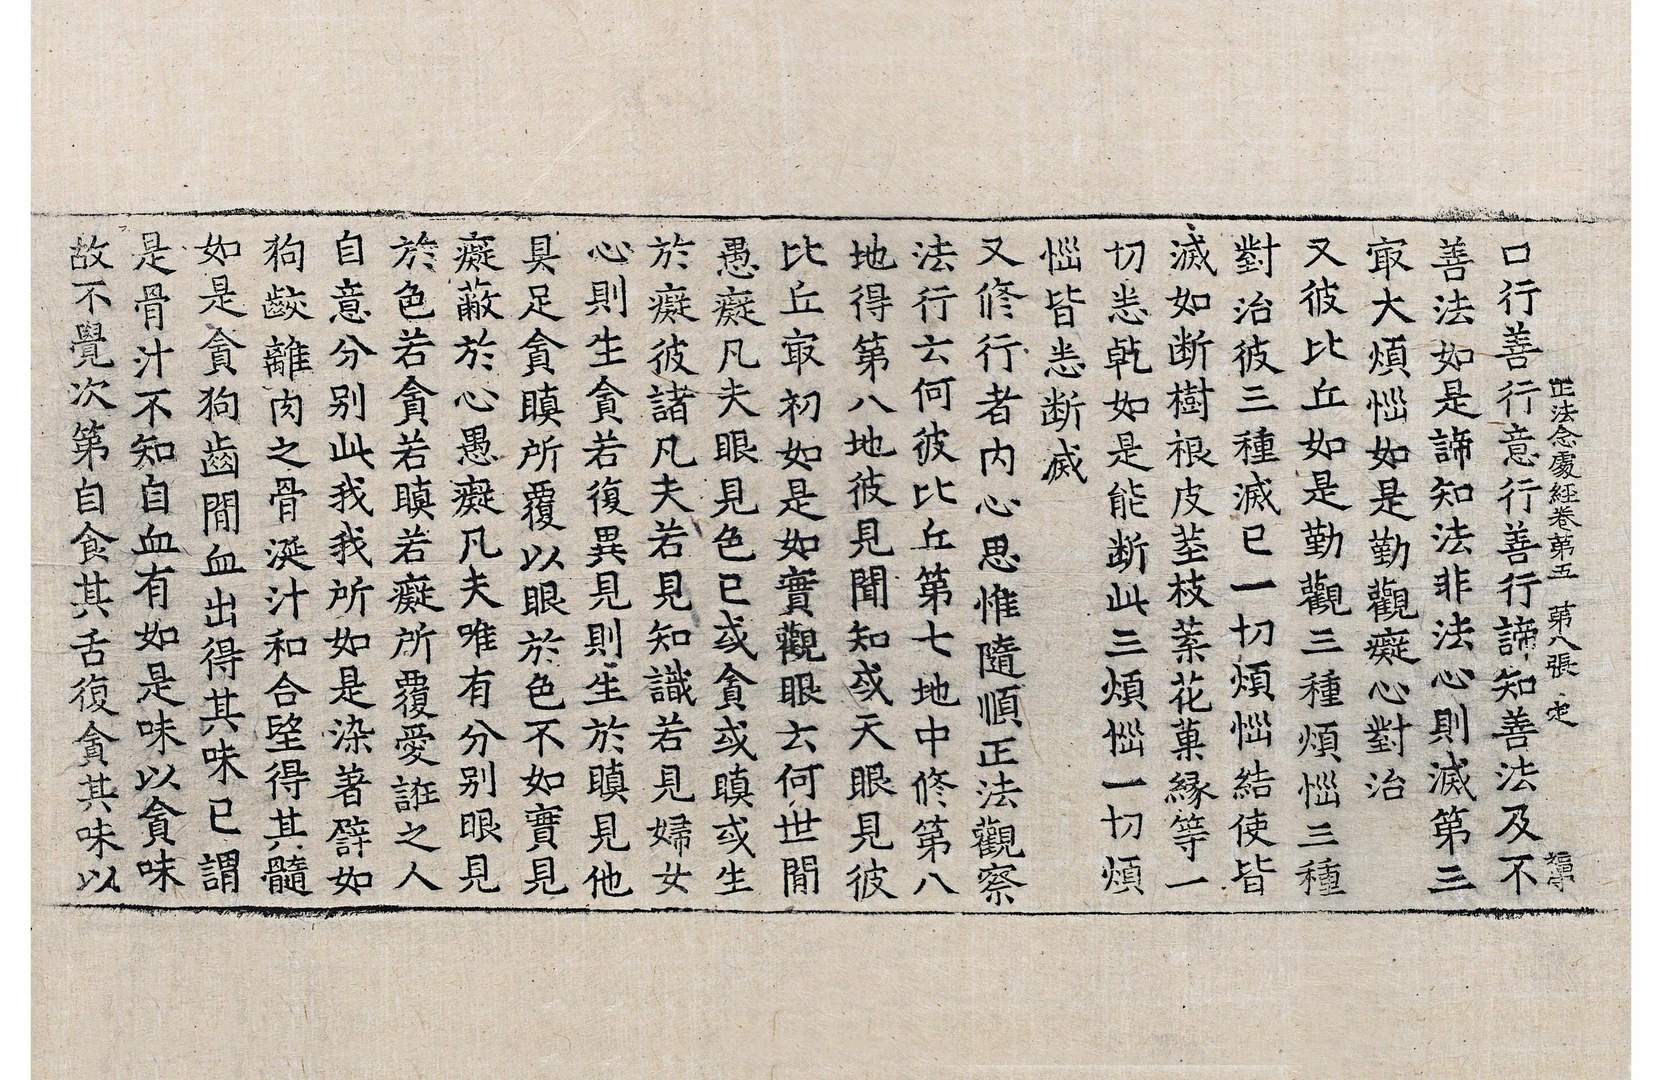 正法念處経卷第五　第八張　定
口行善行意行善行諦知善法及不
善法如是諦知法非法心則滅第三
㝡大煩惱如是勤觀癡心對治
又彼比丘如是勤觀三種煩惱三種
對治彼三種滅已一切煩惱結使皆
滅如断樹根皮莖枝葉花菓縁等一
切悉乹如是能断此三煩惱一切煩
惱皆悉断滅
又修行者内心思惟隨順正法觀察
法行云何彼比丘第七地中修第八
地得第八地彼見聞知或天眼見彼
比丘㝡初如是如實觀眼云何世間
愚癡凡夫眼見色已或貪或瞋或生
於癡彼諸凡夫若見知識若見婦女
心則生貪若復異見則生於瞋見他
具足貪瞋所覆以眼於色不如實見
癡蔽於心愚癡凡夫唯有分别眼見
於色若貪若瞋若癡所覆愛誑之人
自意分别此我我所如是染著譬如
狗齩離肉之骨涎汁和合望得其髓
如是貪狗齒間血出得其味已謂
是骨汁不知自血有如是味以貪味
故不覺次第自食其舌復貪其味以